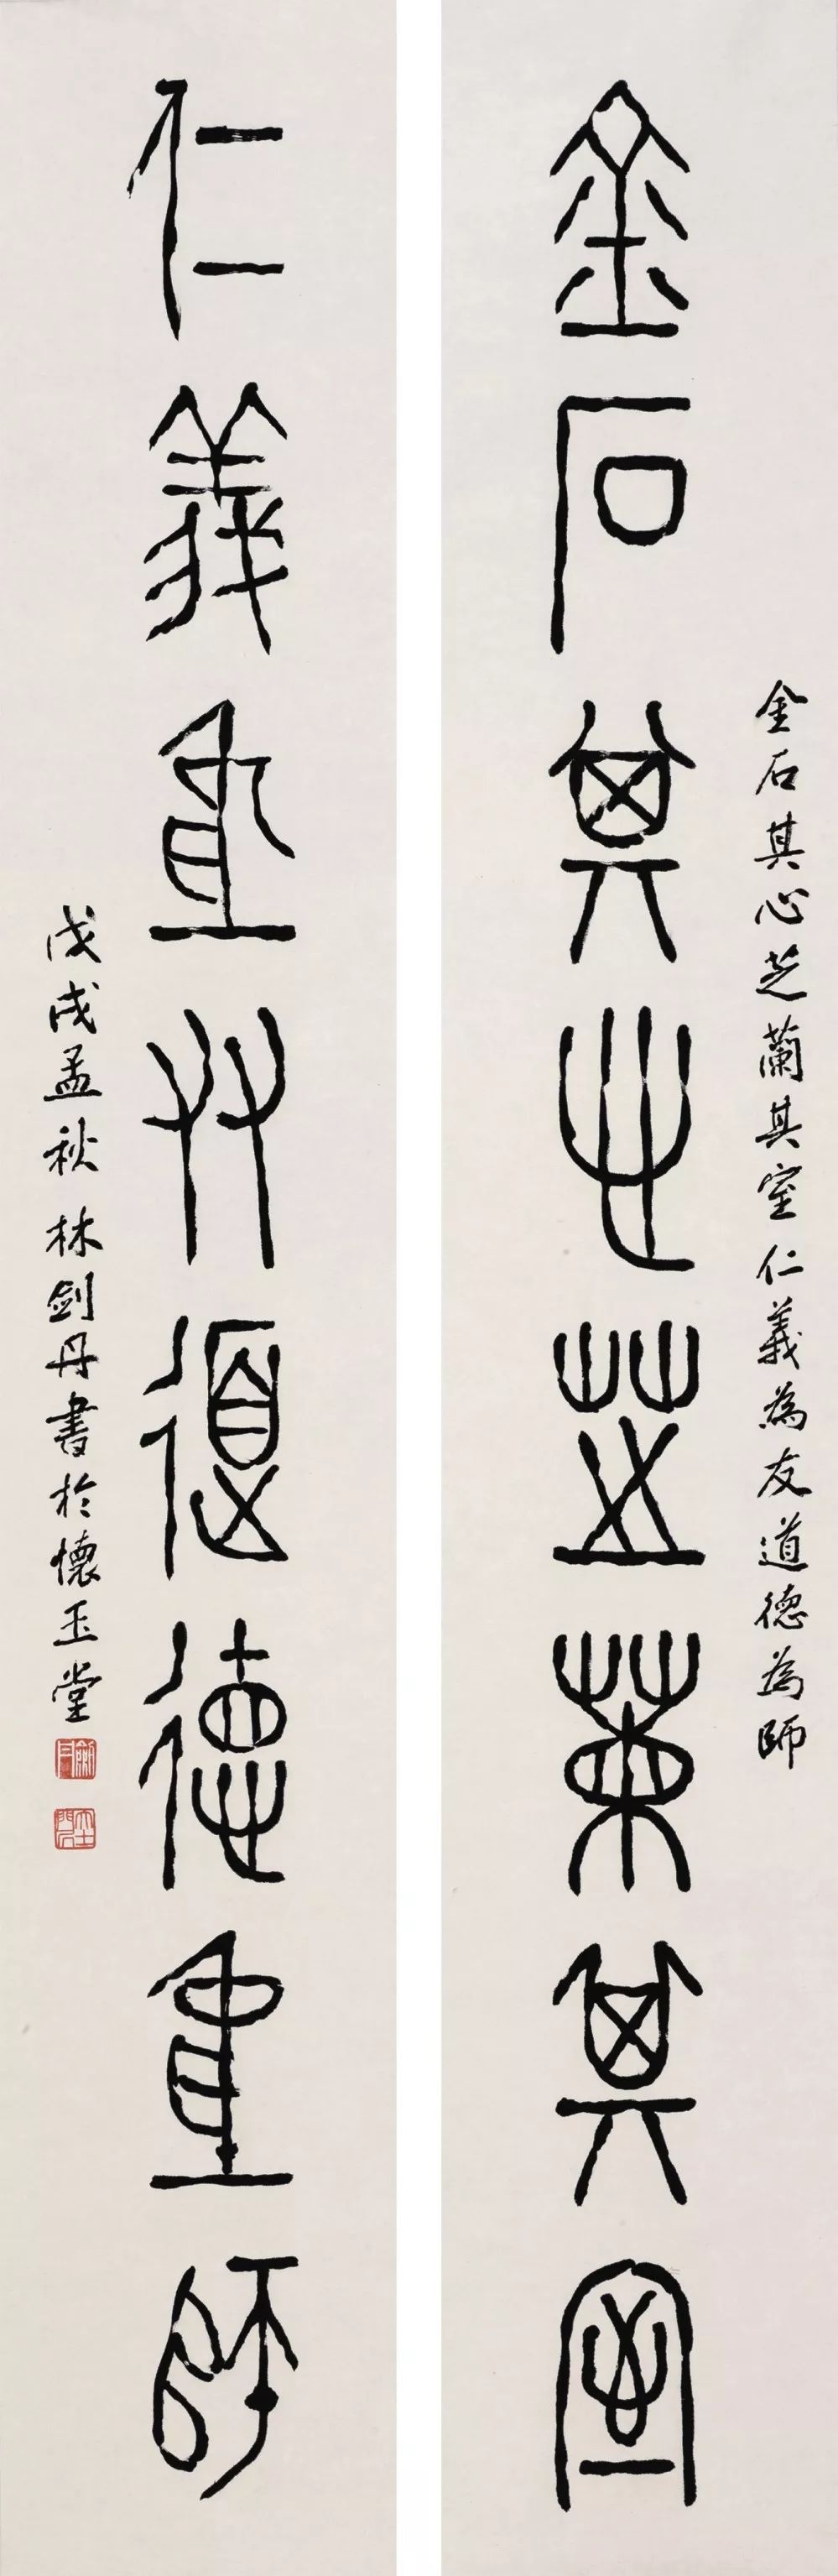 金石其心芝蘭其室仁義為友道德為師
金石其心芝蘭其室
仁義為友道德為師
戊戌孟秋 林劍丹書於懷玉堂